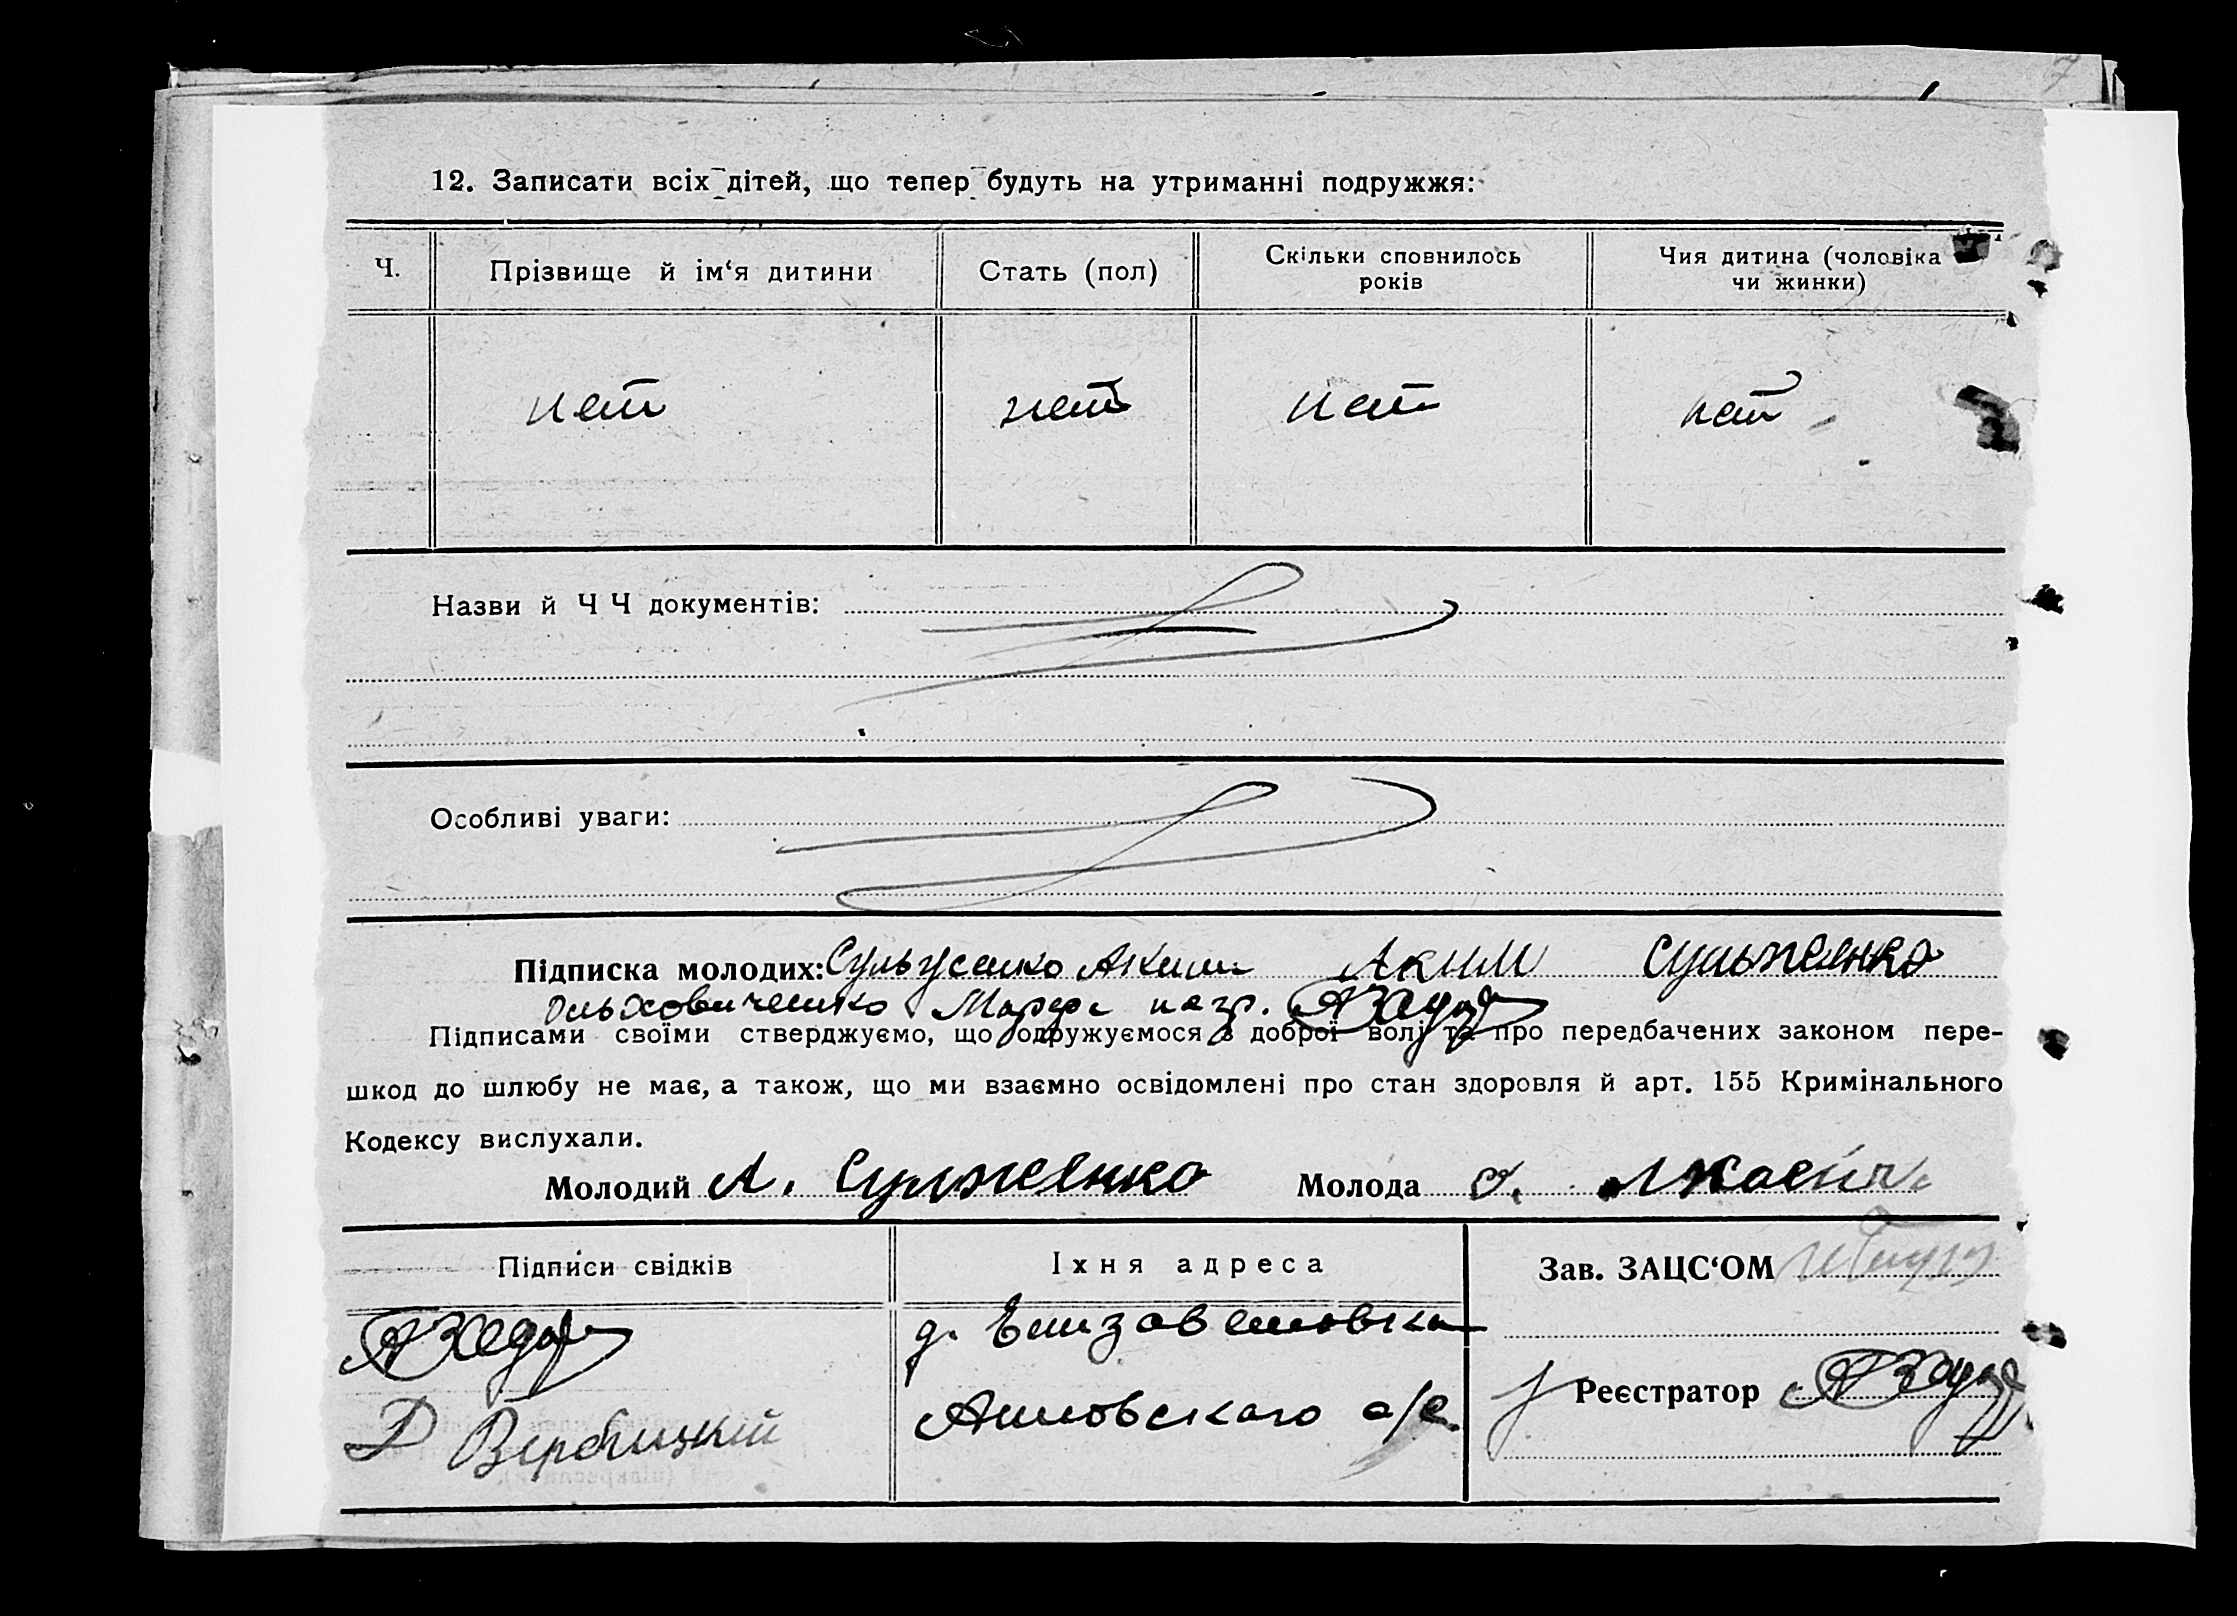 12. Записати всіх дітей, що тепер будуть на утриманні подружжя:
Ч.
Прізвище й ім‘я дитини
Стать (пол)
Скільки сповнилось
років
Чия дитина (чоловіка
чи жинки)
нет нет нет нет
Назви й Ч Ч документів:
Особливі уваги:
Підписка молодих: Аким Сульженко
Марфа
Підписами своїми стверджуємо, що одружуємося з доброї волі та про передбачених законом пере-
шкод до шлюбу не має, а також, що ми взаємно освідомлені про стан здоровля й арт. 155 Кримінального
Кодексу вислухали.
Молодий А. Сулженко Молода
Підписи свідків
Іхня адреса
Зав. ЗАЦС‘ОМ
д. Елизаветовка
Д Вербицкий
с/с.
Реєстратор